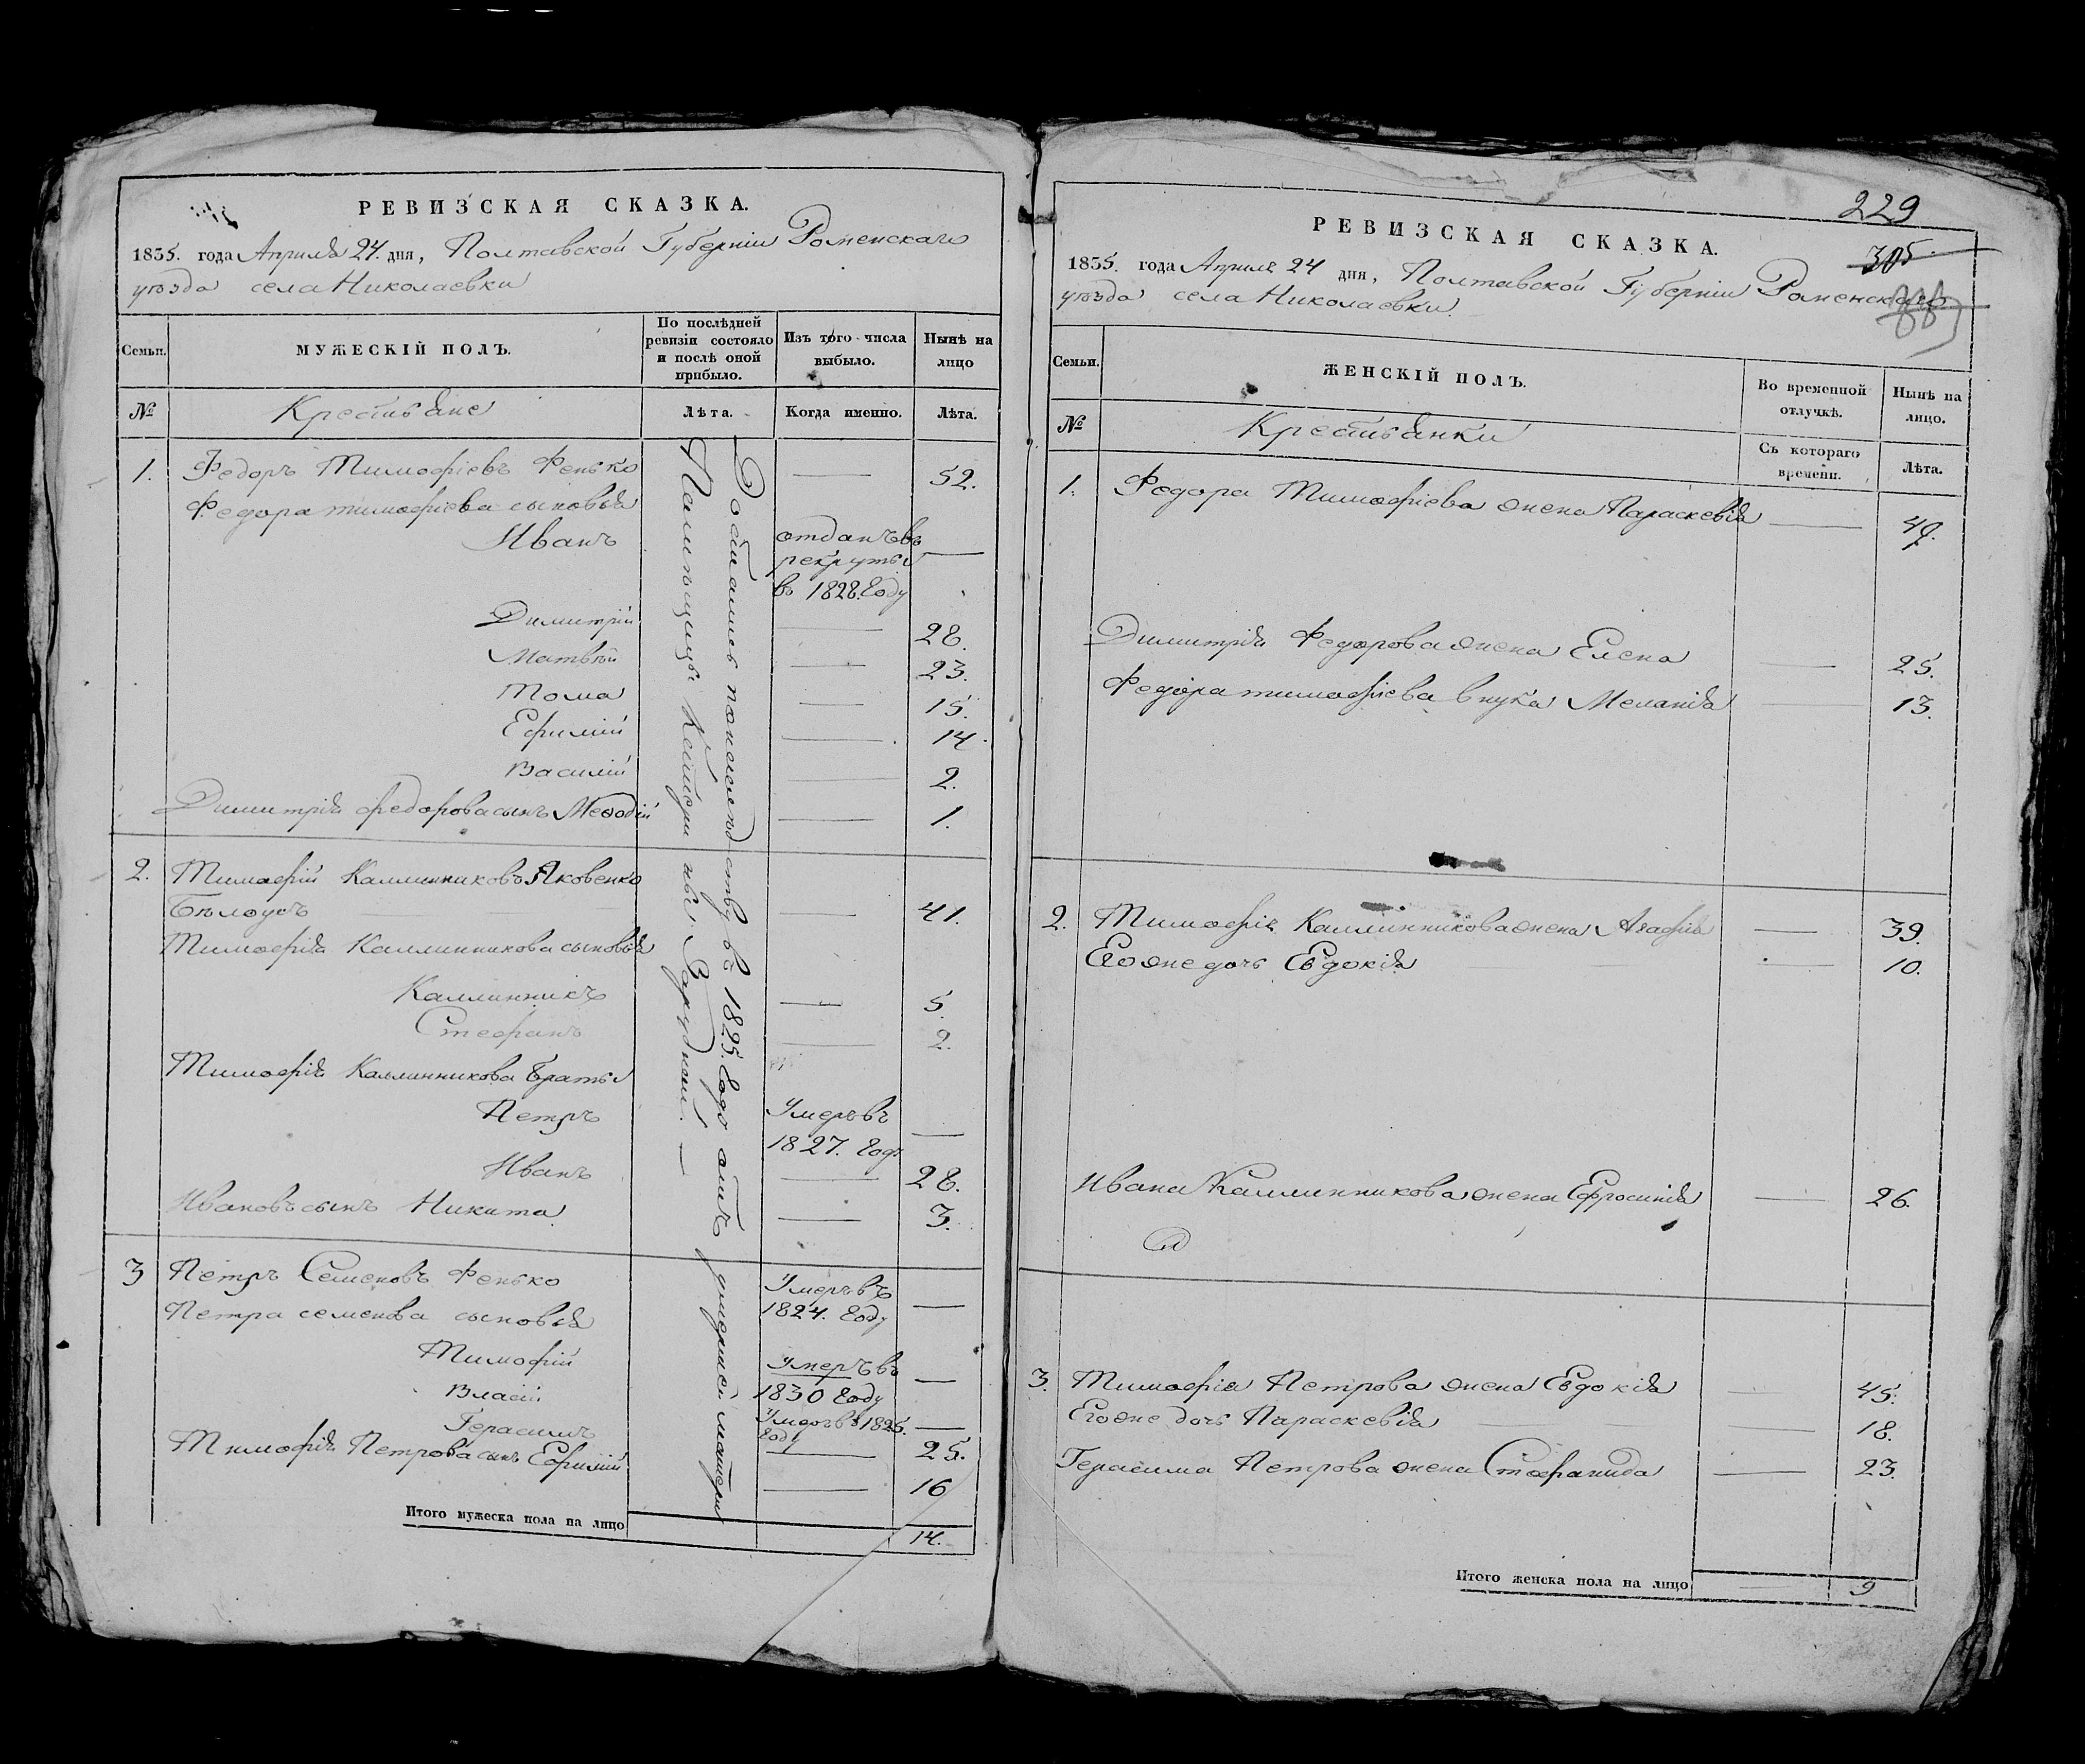 РЕВИЗСКАЯ СКАЗКА.
1835. года Апреля 24. дня, Полтавской Губерніи Роменскаго
уѣзда села Николаевки
Семьи.
МУЖЕСКІЙ ПОЛЪ.
По послѣдней ревизіи состояло и послѣ оной прибыло.
Изъ того числа выбыло.
Нынѣ на лицо
№
Крестьяне
Лѣта.
Когда именно.
Лѣта.
Достались по наследству въ 1825. Году отъ умершей матери
Помѣщицы
1. Федоръ Тимофіевъ Фенько — 52.
Федора тимофіева сыновья
Иванъ отданъ въ —
рекруты
въ 1828. Году
Димитрій — 28.
Матвѣй — 23.
Тома — 15.
Ефимій — 14.
Василій — 2.
Димитрія федорова сынъ Меѳодій — 1.
2. Тимофій Каллинниковъ Яковенко
Бѣлоусъ — 41.
Тимофія Каллинникова сыновья
Каллинникъ — 5.
Стефанъ — 2.
Тимофія Каллинникова братья
Петръ Умеръ въ —
1827. Году
Иванъ — 28.
Ивановъ сынъ Никита — 3.
3 Петръ Семеновъ Фенько Умеръ въ —
1824. Году
Петра семенова сыновья
Тимофій Умеръ въ —
1830 Году
Власій Умеръ въ 1825. —
Году
Герасимъ — 25.
Тимофія Петрова сынъ Ефимій — 16
Итого мужеска пола на лицо 14.
229
305.
РЕВИЗСКАЯ СКАЗКА.
1835. года Апреля 24 дня, Полтавской Губерніи Роменскаго
уѣзда села Николаевки.
Семьи.
ЖЕНСКІЙ ПОЛЪ.
Во временной отлучкѣ.
Нынѣ на лицо.
№
Крестьянки
Съ котораго времени.
Лѣта.
1. Федора Тимофіева жена Параскевія — 49.
Димитрія Федорова жена Елена — 25.
Федора тимофіева внука Меланія — 13.
2. Тимофія Каллинникова жена Агафія — 39.
Его же дочь Евдокія — 10.
Ивана Каллинникова жена Ефросинія — 26.
3. Тимофія Петрова жена Евдокія — 45.
Его же дочь Параскевія — 18.
Герасима Петрова жена Стефанида — 23.
Итого женска пола на лицо — 9